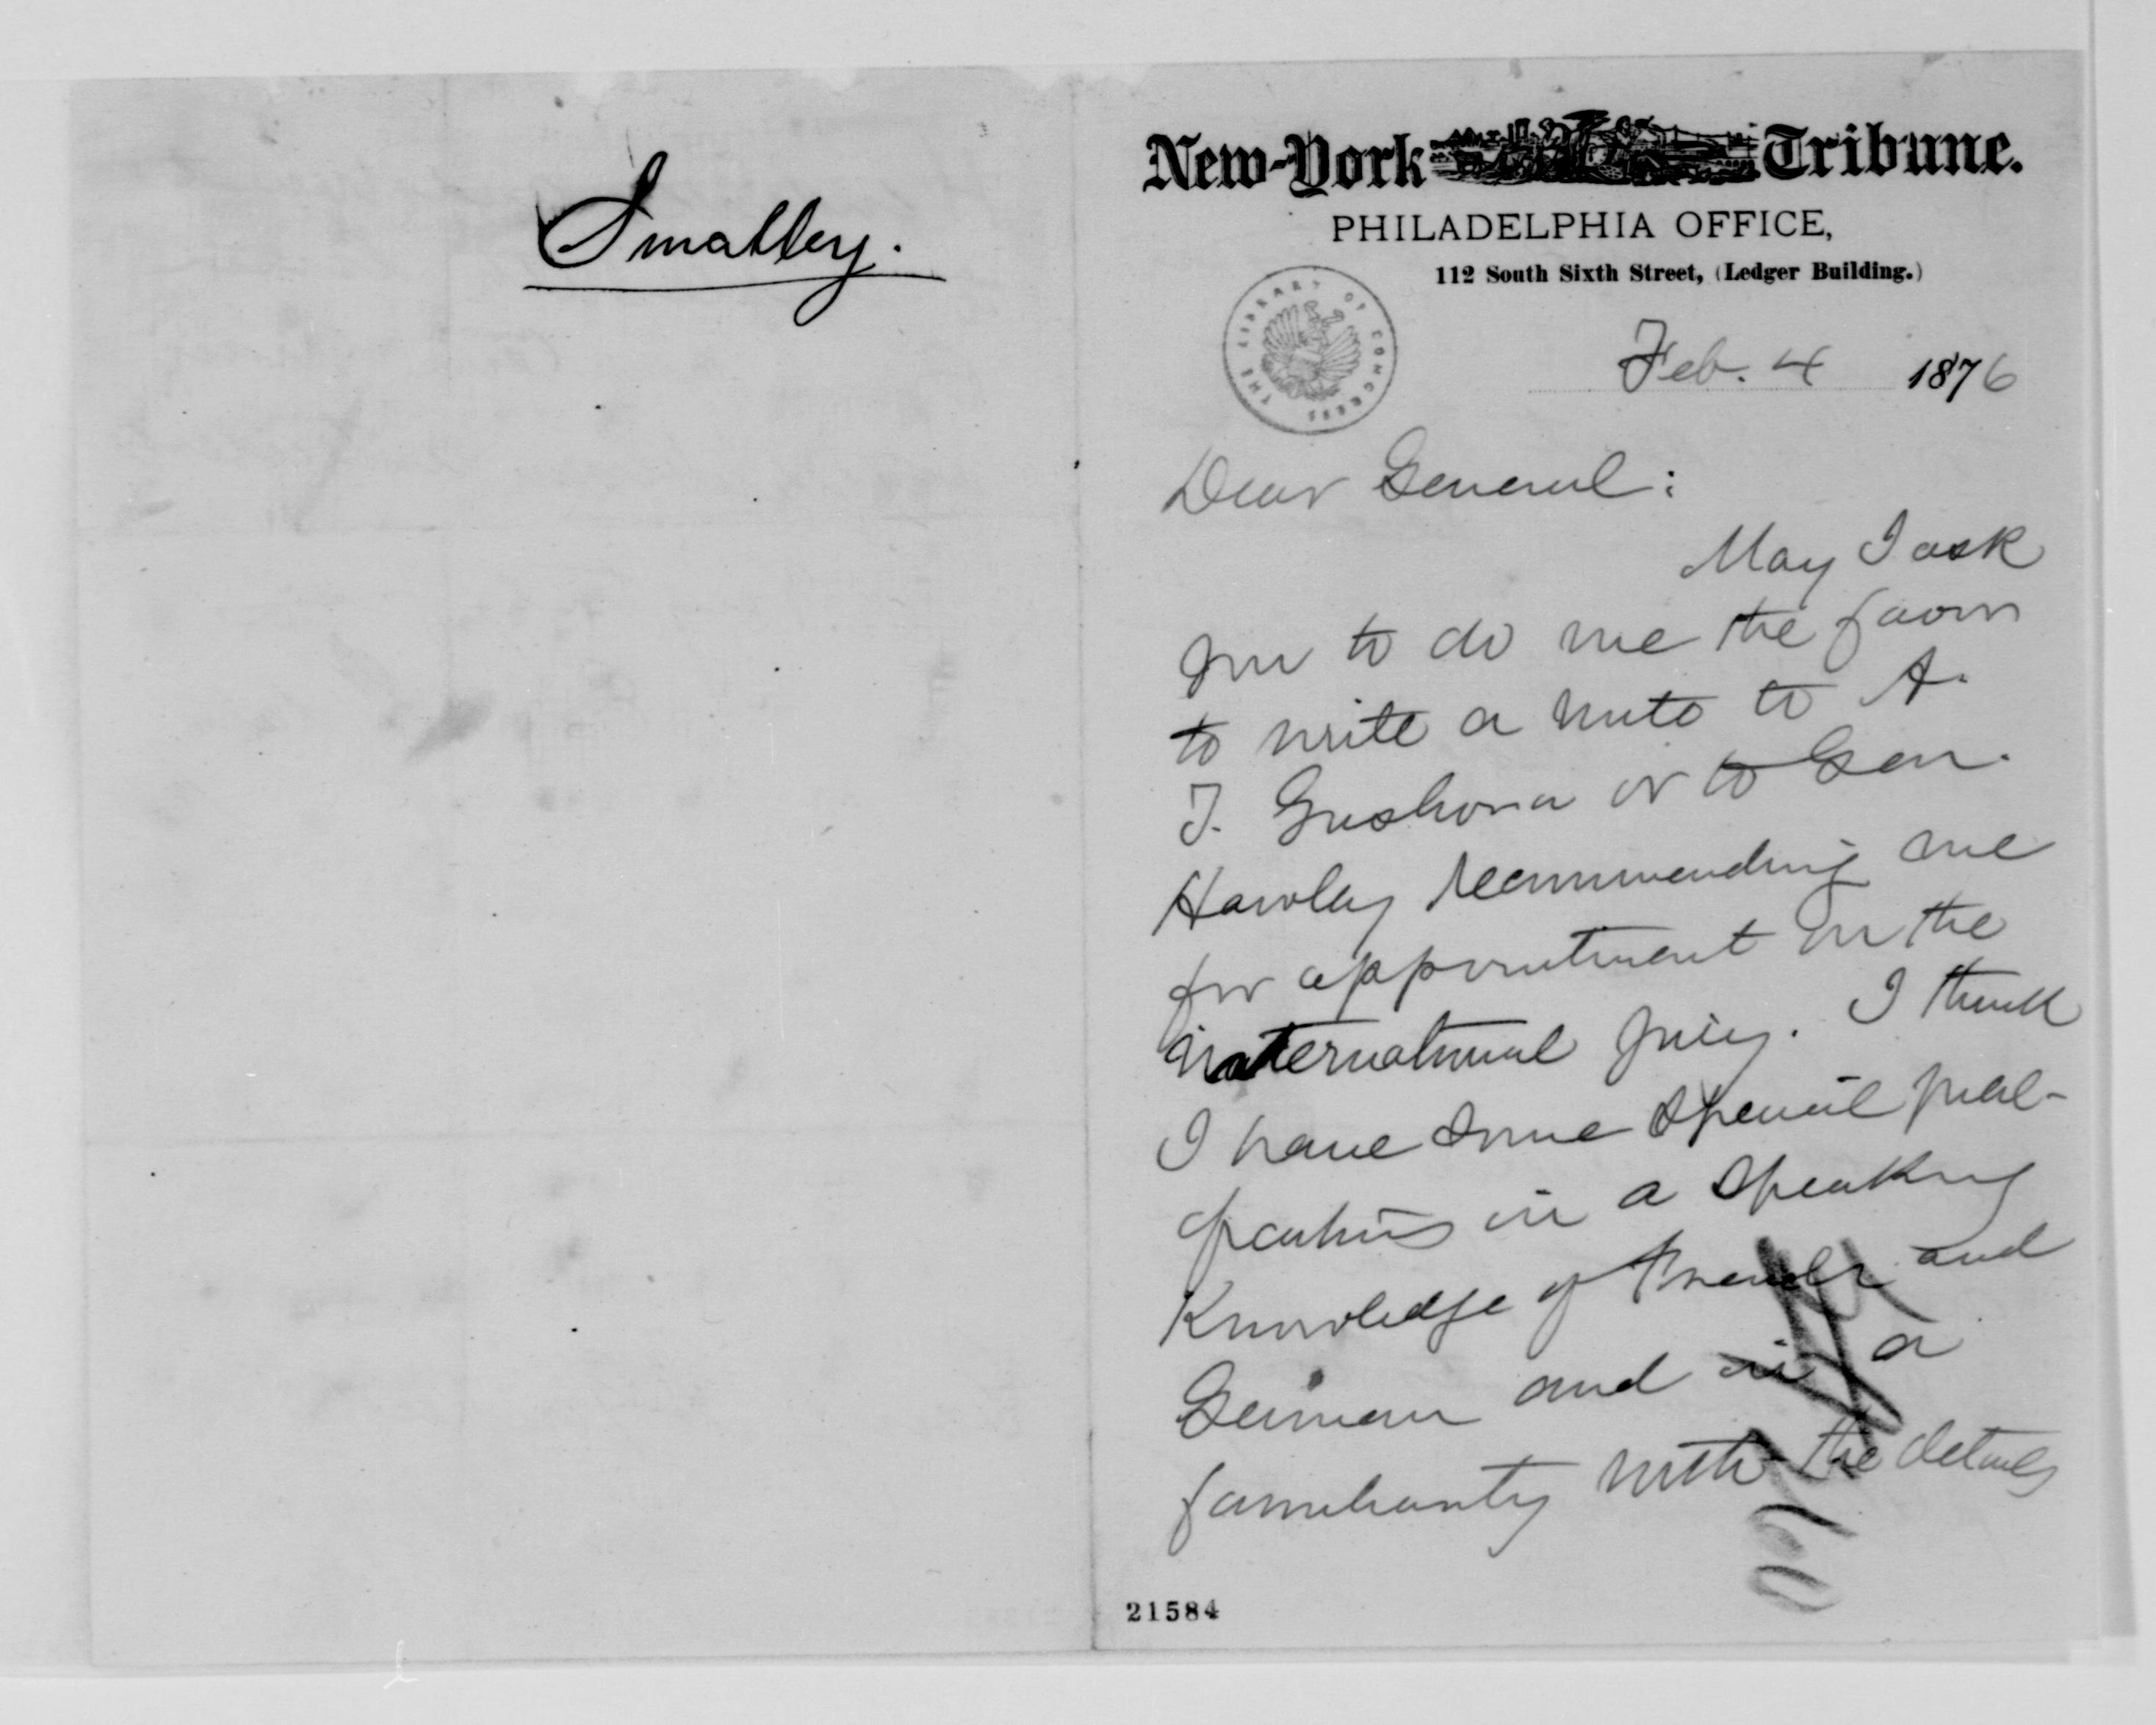 Smalley.
New-York Tribune.
PHILADELPHIA OFFICE,
112 South Sixth Street, (Ledger Building.)
THE LIBRARY OF CONGRESS
Feb. 4 1876
Dear General:
May I ask
you to do me the favor
to write a note to A.
T. Goshorn or to Gen.
Hawley recommending me
for appointment on the
international jury. I think
I have some special qual-
ifications in a speaking
knowledge of French and
German and in a
familiarity with the details
21584